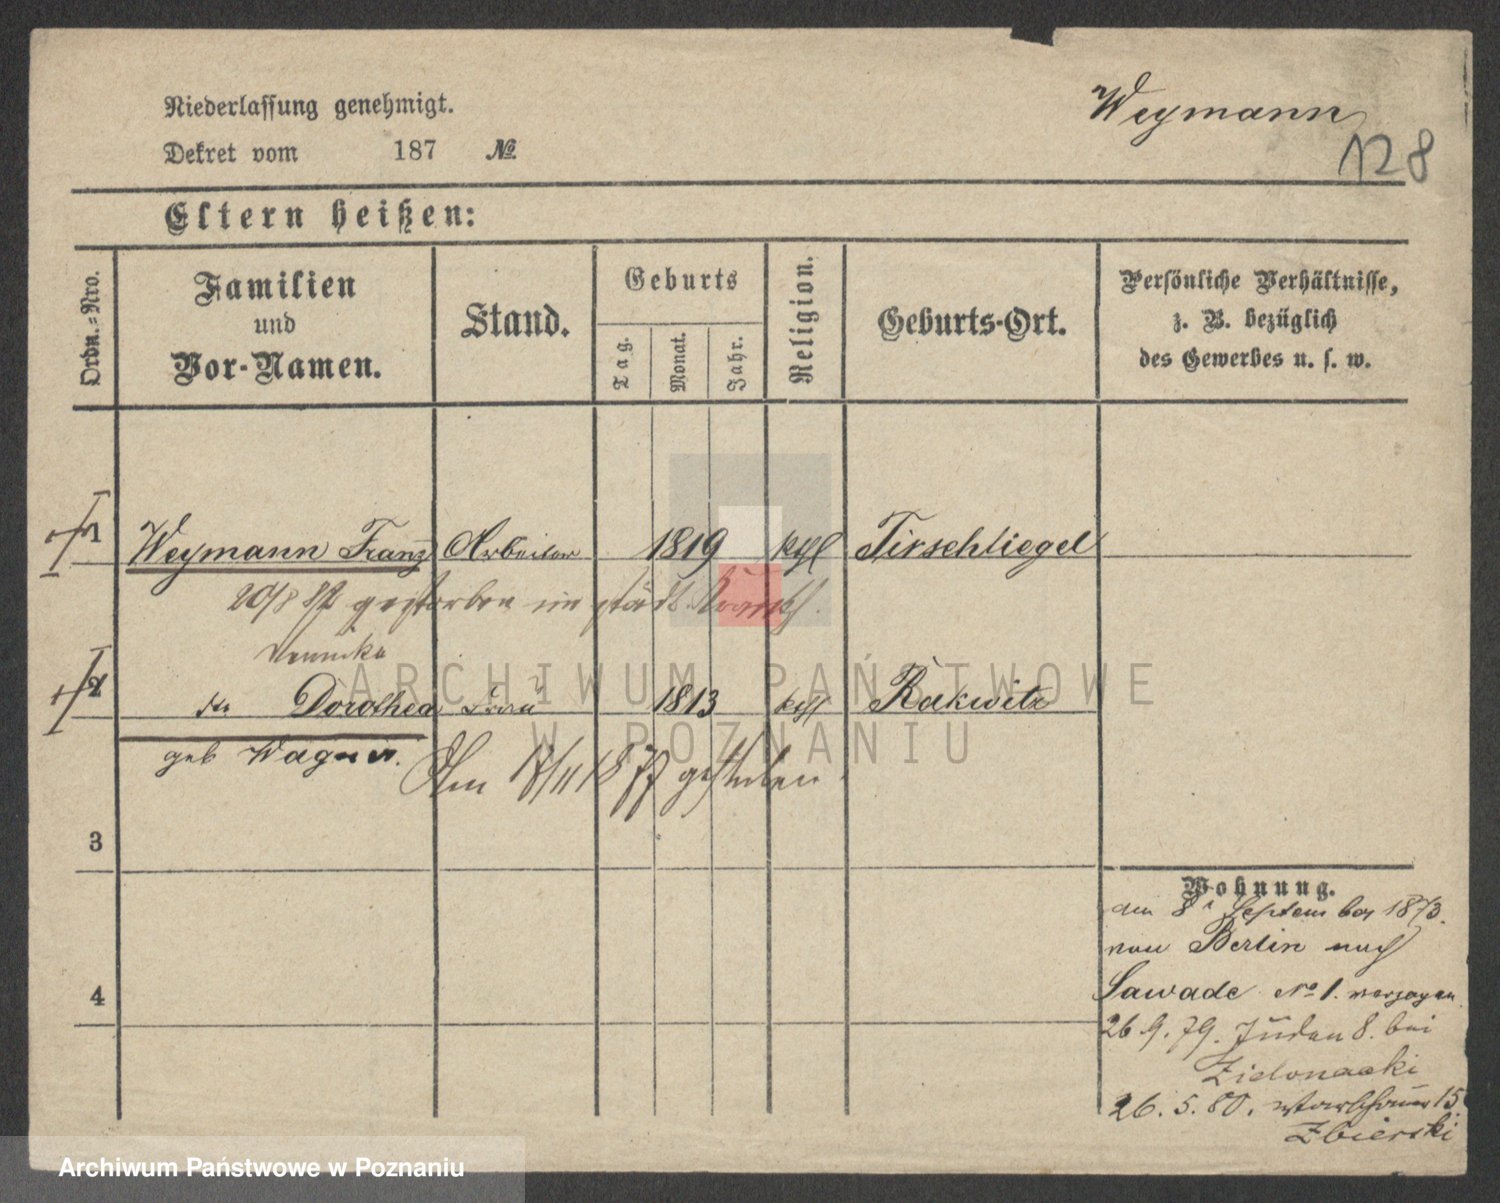 Niederlassung genehmigt.
Weymann
Dekret vom 187 №
128
Eltern heißen:
Ordn.-Nro.
Familien
und
Vor-Namen.
Stand.
Geburts
Tag.
Monat.
Jahr.
Religion.
Geburts-Ort.
Persönliche Verhältnisse,
z. B. bezüglich
des Gewerbes u. s. w.
1 Weymann Franz Arbeiter 1819 kath Tirschtiegel
20/8 gestorben im städt. Krankh.
2 Dorothea Frau 1813 kath Rakwitz
geb Wagner.
Am 17/11 1877 gestorben.
3
4
Wohnung.
am 8t September 1873.
von Berlin nach
Zawade No 1. verzogen
26.9.79. Juden 8. bei
Zielonacki
26.5.80. 15
Zbierski
ARCHIWUM PAŃSTWOWE
W POZNANIU
Archiwum Państwowe w Poznaniu